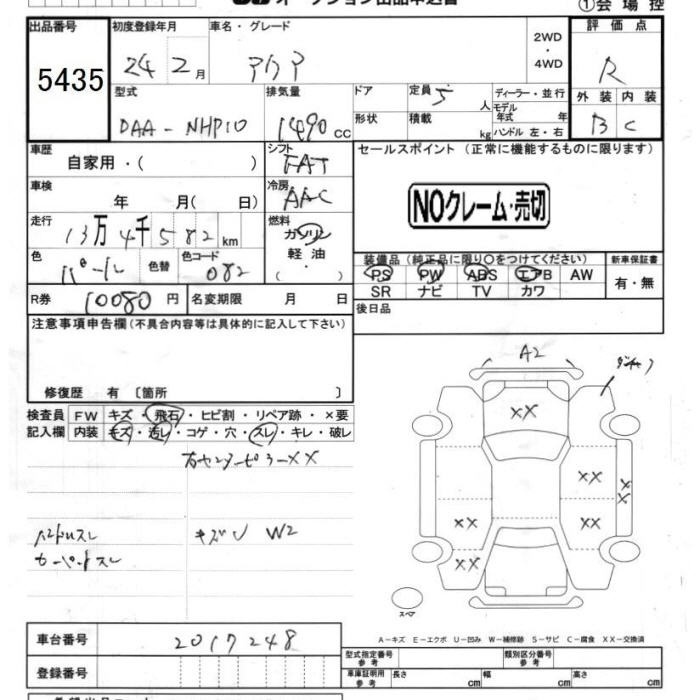 オークション出品申込書
①会場控
出品番号 初度登録年月 車名・グレード 評価点
5435 24 2月 アクア 2WD・4WD R
型式 排気量 ドア 定員 5人 ディーラー・並行 外装 内装
DAA-NHP10 1490cc 形状 積載 kg モデル年式 年 ハンドル 左・右 B C
車歴 自家用・( ) シフト FAT セールスポイント (正常に機能するものに限ります)
車検 年 月(日) 冷房 AAC NOクレーム・売切
走行 13万4千582km 燃料 ガソリン 軽油・
色 パール 色替 色コード 082
装備品(純正品に限り○をつけてください) 新車保証書
PS PW ABS エアB AW 有・無
SR ナビ TV カワ
R券 10080円 名変期限 月 日 後日品
注意事項申告欄(不具合内容等は具体的に記入して下さい)
修復歴 有 〔箇所 〕
検査員 FW キズ・飛石・ヒビ割・リペア跡・×要
記入欄 内装 キズ・汚レ・コゲ・穴・スレ・キレ・破レ
右センターピラーXX
ハンドルスレ キズU W2
カーペットスレ
A2
XX
XX
XX
XX
XX
XX
スペア
A-キズ E-エクボ U-凹み W-補修跡 S-サビ C-腐食 XX-交換済
車台番号 2017248
型式指定番号 参考 類別区分番号 参考
登録番号 車庫証明用 参考 長さ cm 幅 cm 高さ cm